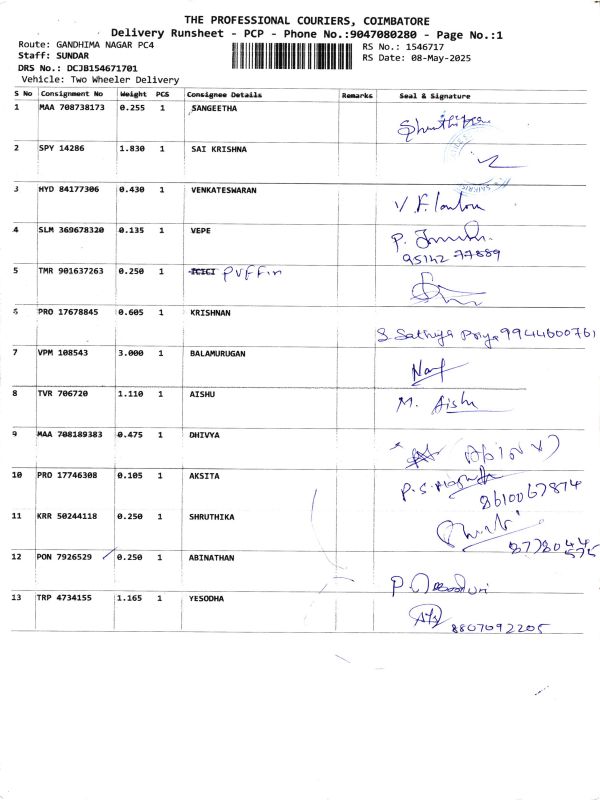 THE PROFESSIONAL COURIERS, COIMBATORE
Delivery Runsheet - PCP - Phone No.:9047080280 - Page No.:1
Route: GANDHIMA NAGAR PC4
Staff: SUNDAR
DRS No.: DCJB154671701
Vehicle: Two Wheeler Delivery
RS No.: 1546717
RS Date: 08-May-2025
S No Consignment No Weight PCS Consignee Details Remarks Seal & Signature
1 MAA 708738173 0.255 1 SANGEETHA
2 SPY 14286 1.830 1 SAI KRISHNA
3 HYD 84177306 0.430 1 VENKATESWARAN
4 SLM 369678320 0.135 1 VEPE P.
95142 77889
5 TMR 901637263 0.250 1 ICICI PUFFin
6 PRO 17678845 0.605 1 KRISHNAN
S. Sathya Priya 9944600761
7 VPM 108543 3.000 1 BALAMURUGAN
8 TVR 706720 1.110 1 AISHU M. Aishu
9 MAA 708189383 0.475 1 DHIVYA
10 PRO 17746308 0.105 1 AKSITA P.S.
8610067814
11 KRR 50244118 0.250 1 SHRUTHIKA
12 PON 7926529 0.250 1 ABINATHAN
13 TRP 4734155 1.165 1 YESODHA
8807092205